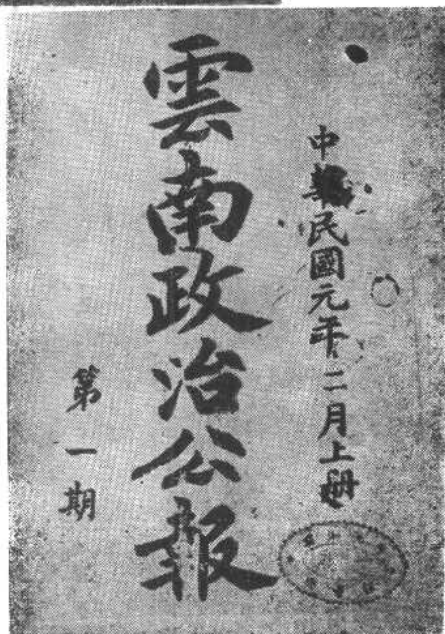 中華民國元年二月上册
雲南政治公報
第一期